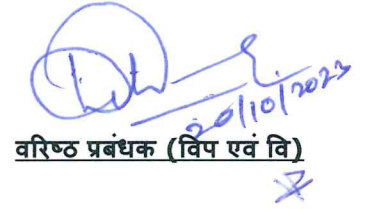 20/10/2023
वरिष्ठ प्रबंधक (विप एवं वि)